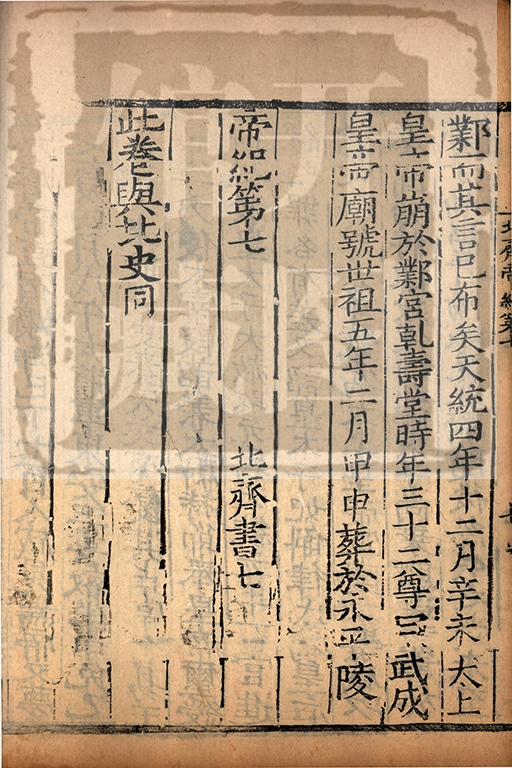 北齊帝紀第七
鄴而其言已布矣天統四年十二月辛未太上
皇帝崩於鄴宮乹壽堂時年三十二尊曰武成
皇帝廟號世祖五年二月甲申葬於永平陵
帝紀第七 北齊書七
此卷與北史同